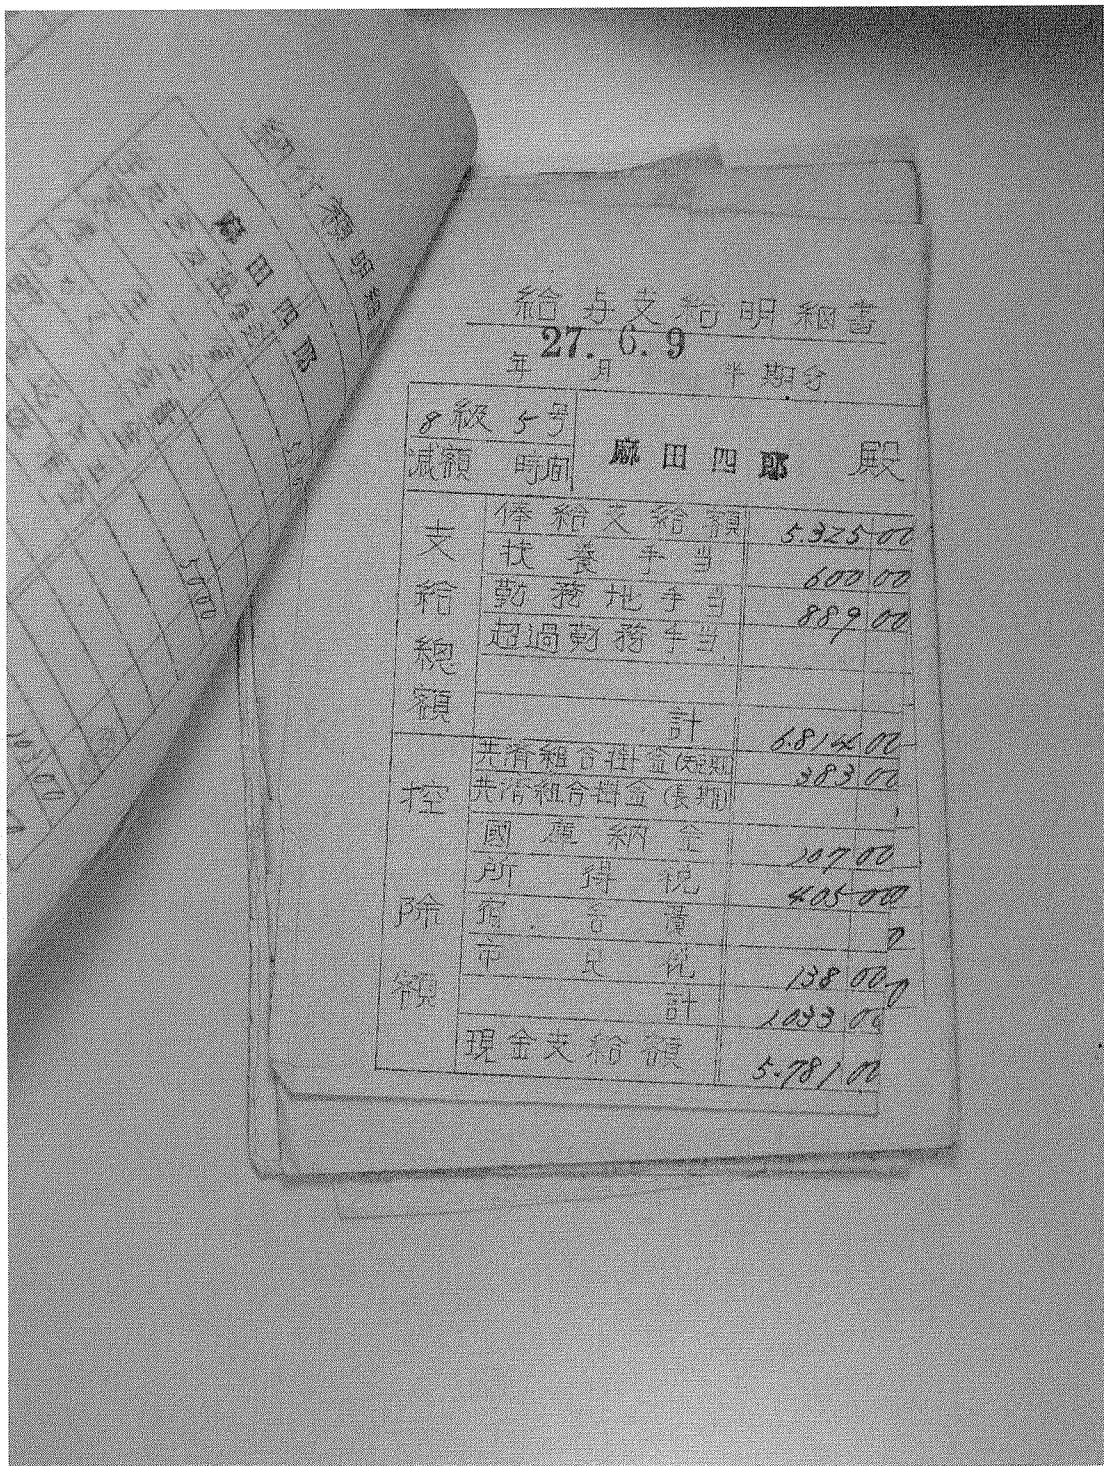 給与支給明細書
27.6.9
年 月 半期分
8級5号
減額 時間
麻田四郎 殿
支給総額
俸給支給額 5.325 00
扶養手当 600 00
勤務地手当 889 00
超過勤務手当
計 6.814 00
控除額
共済組合掛金(短期) 383 00
共済組合掛金(長期)
國庫納金 107 00
所得税 405 00
宿舎費
市民税 138 00
計 1033 00
現金支給額 5.781 00
麻田四郎